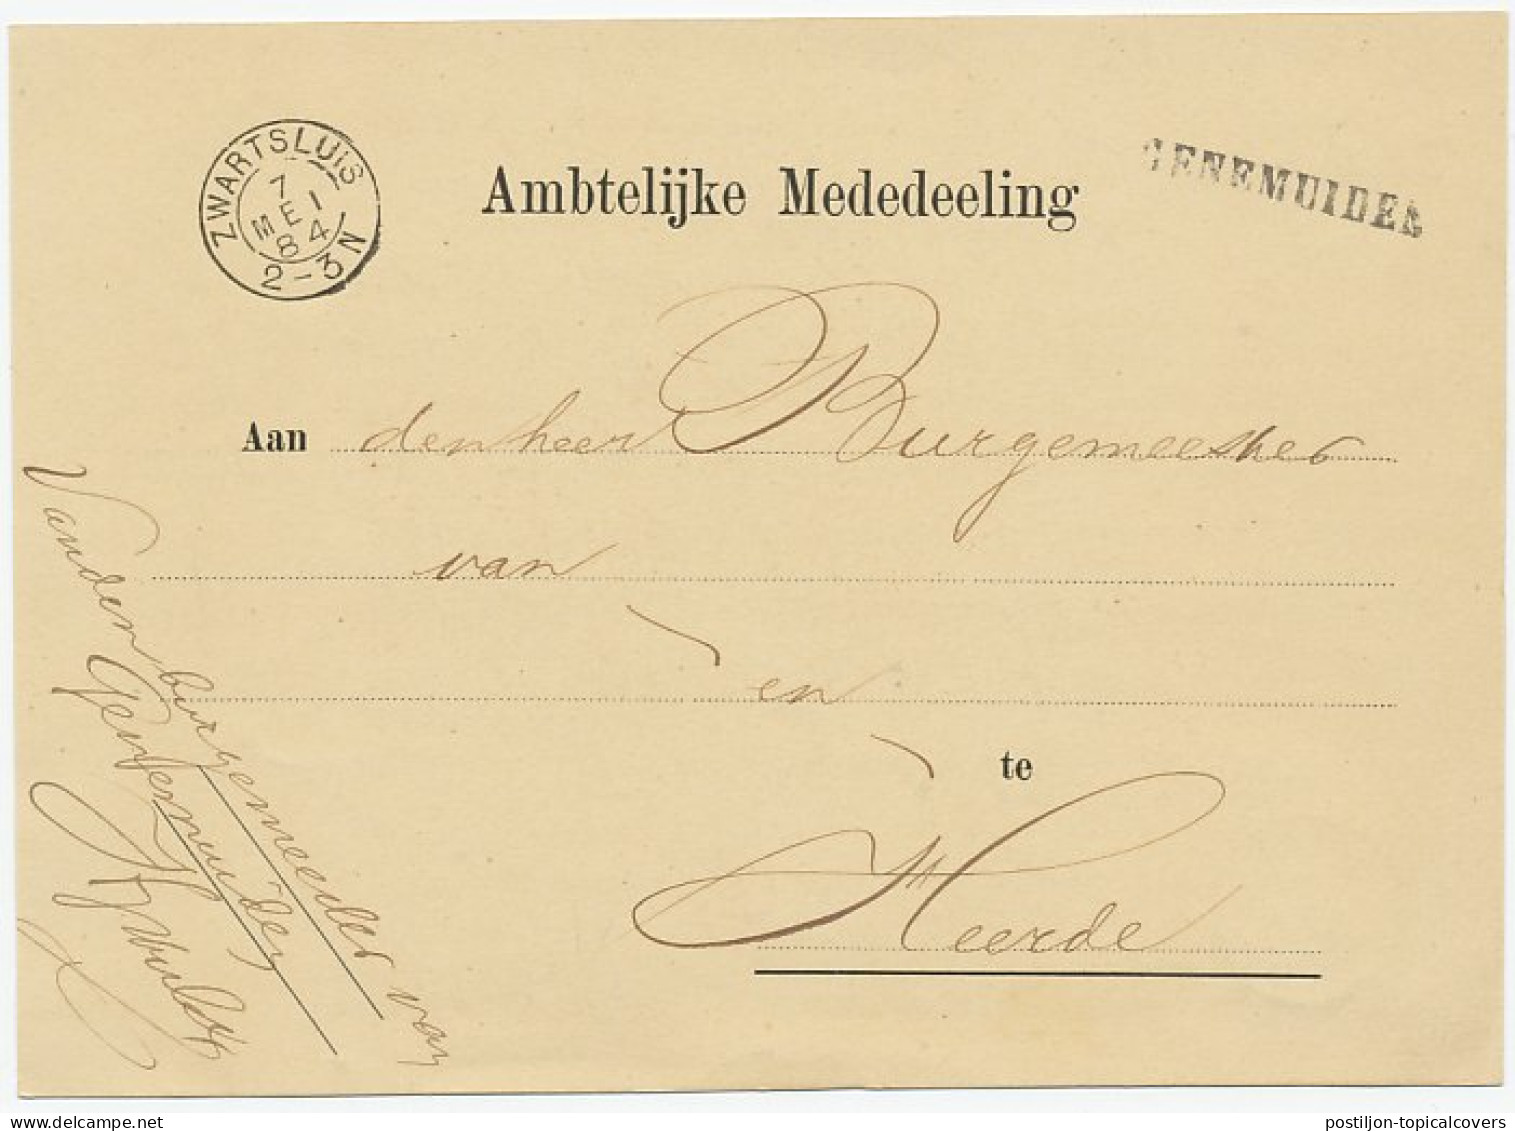 ZWARTSLUIS
7
MEI
84
2-3N
Ambtelijke Mededeeling
GENEMUIDEN
Aan den heer Burgemeester
van
en
te
Heerde
Van den burgemeester van
Genemuiden
postiljon-topicalcovers